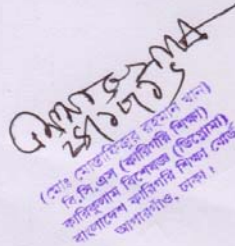 (মোঃ মোস্তাফিজুর রহমান খান)
বি.সি.এস (কারিগরি শিক্ষা)
কারিকুলাম বিশেষজ্ঞ (ডিপ্লোমা)
বাংলাদেশ কারিগরি শিক্ষা বোর্ড
আগারগাঁও, ঢাকা।